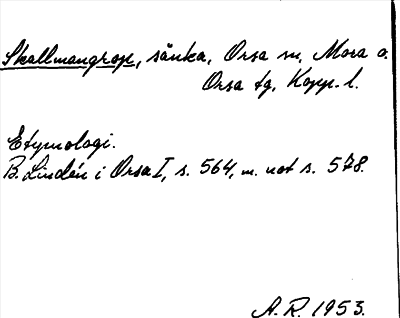 Skallmangrop, sänka, Orsa sn, Mora o.
Orsa tg, Kopp. l.
Etymologi.
B. Lindén i Orsa I, s. 564, m. not s. 578.
A. R. 1953.